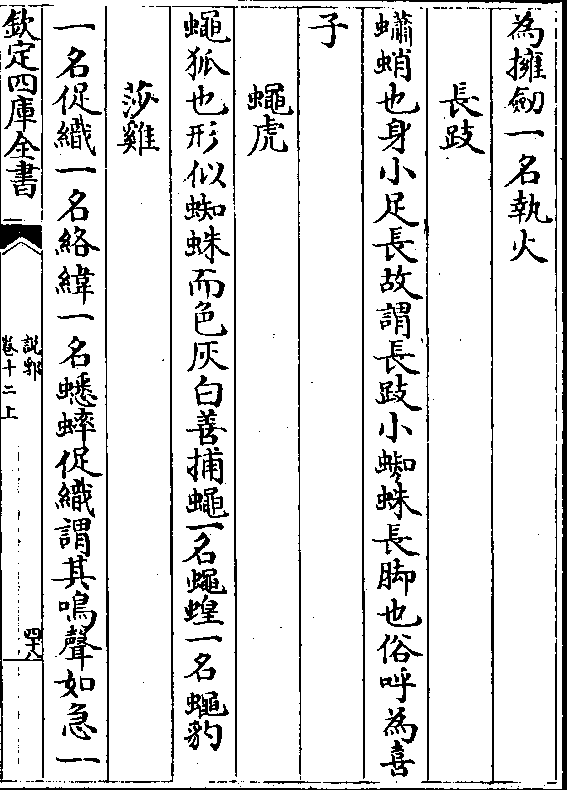 為擁劎一名執火
長跂
蠨蛸也身小足長故謂長跂小蜘蛛長脚也俗呼為喜
子
蠅虎
蠅狐也形似蜘蛛而色灰白善捕蠅一名蠅蝗一名蠅豹
莎雞
一名促織一名絡緯一名蟋蟀促織謂其鳴聲如急一
欽定四庫全書
說郛
卷十二上
四十八